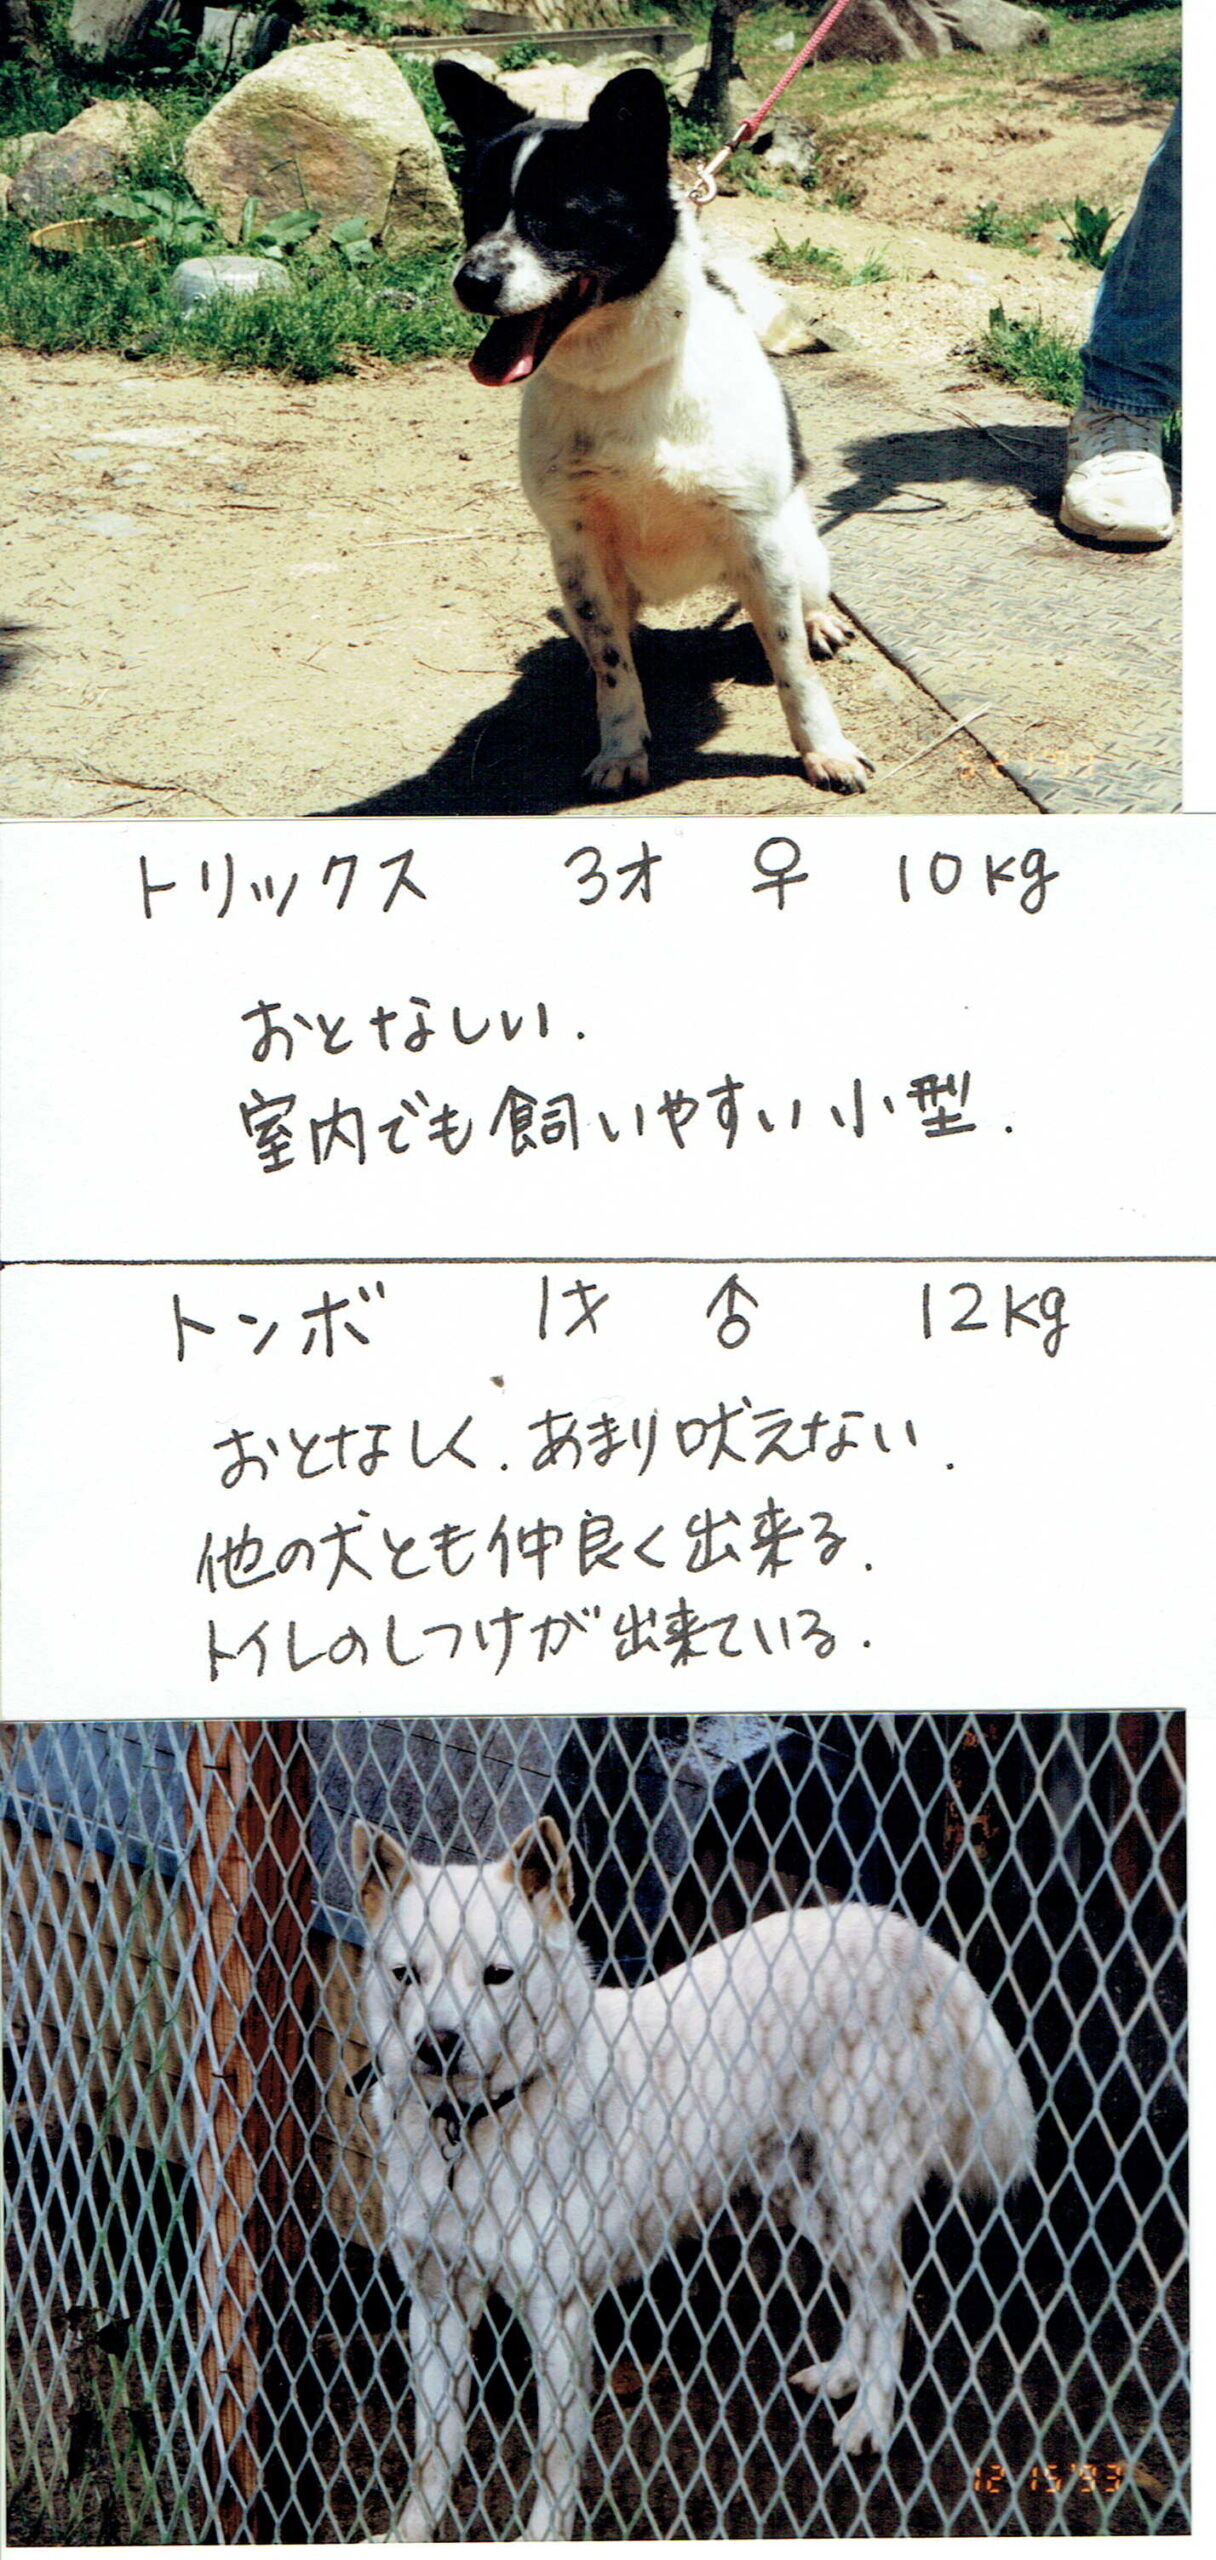 トリックス 3才 ♀ 10kg
おとなしい.
室内でも飼いやすい小型.
トンボ 1才 ♂ 12kg
おとなしく.あまり吠えない.
他の犬とも仲良く出来る.
トイレのしつけが出来ている.
12 15 '93